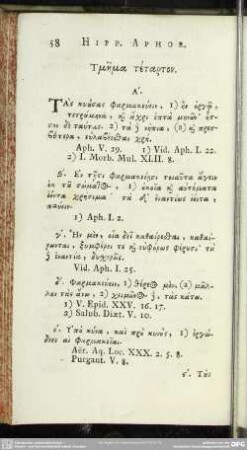 58 HIPP. APHOR.
Τμῆμα τέταρτον.
Α΄.
Τὰς κυούσας φαρμακεύειν, 1) ἢν ὀργᾷ,
τετράμηνα, καὶ ἄχρι ἑπτὰ μηνῶν· ἧσσον
δὲ ταύτας· 2) τὰ δὲ νήπια, (2) καὶ πρεσ-
βύτερα, εὐλαβέεσθαι χρή.
Aph. V. 29. 1) Vid. Aph. I. 22.
2) I. Morb. Mul. XLII. 8.
β΄. Ἐν τῇσι φαρμακείῃσι τοιαῦτα ἄγειν
ἐκ τοῦ σώματος, 1) ὁκοῖα καὶ αὐτόματα
ἰόντα χρήσιμα· τὰ δὲ ἐναντίως ἰόντα,
παύειν.
1) Aph. I. 2.
γ΄. Ἢν μὲν, οἷα δεῖ καθαίρεσθαι, καθαί-
ρωνται, ξυμφέρει τε καὶ εὐφόρως φέρουσι· τὰ
δ᾽ ἐναντία, δυσχερῶς.
Vid. Aph. I. 25.
δ΄. Φαρμακεύειν, 1) θέρεος μὲν, (2) μᾶλ-
λον τὰς ἄνω, 2) χειμῶνος δὲ, τὰς κάτω.
1) V. Epid. XXV. 16. 17.
2) Salub. Diæt. V. 10.
ε΄. Ὑπὸ κύνα, καὶ πρὸ κυνὸς, 1) ἐργώ-
δεες αἱ φαρμακεῖαι.
Aër. Aq. Loc. XXX. 2. 5. 8.
Purgant. V. 8.
ς΄. Τοὺς